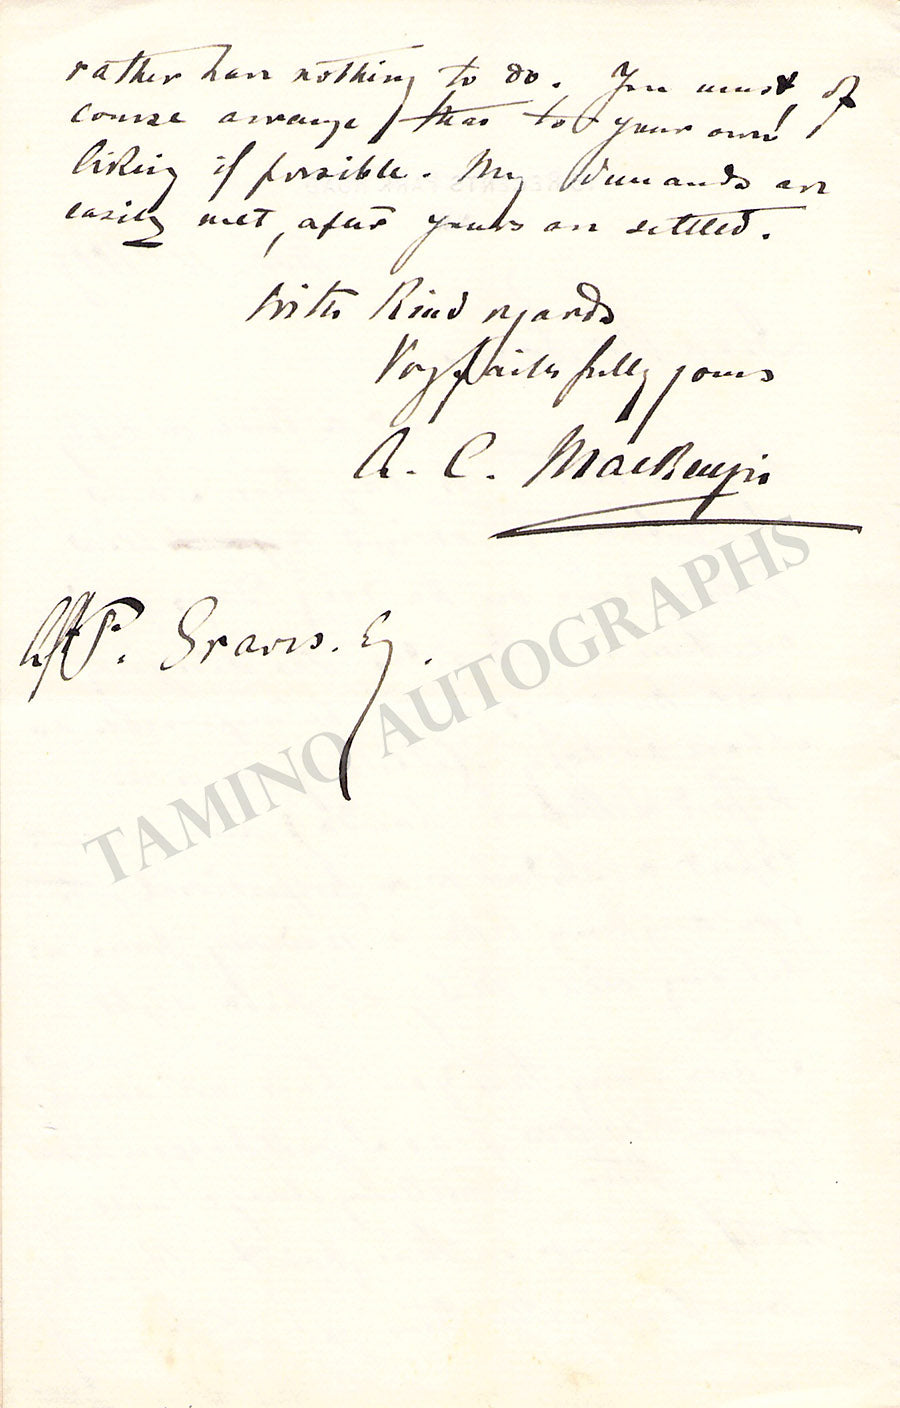 rather have nothing to do. You must, of
course arrange that to your own
liking if possible. My demands are
easily met, after yours are settled.
With Kind regards
Very faithfully yours
A. C. MacKenzie
A. P. Graves. Esq.
TAMINO AUTOGRAPHS